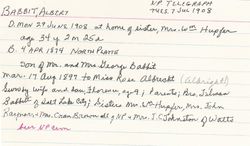 BABBIT, ALBERT
NP TELEGRAPH
TUES. 7 JUL 1908
D. MON 29 JUNE 1908 at home of sister, Mrs. Wm Hupfer
age 34 y 2 m 25 d
B. 4 APR 1874 NORTH PLATTE
Son of Mr. and Mrs. George Babbit
mar. 17 Aug 1897 to Miss Rose Albrecht (Albright)
Surv by wife and dau, Florence, age 9; parents; Bro,
Babbit of Salt Lake City; Sisters Mrs. Wm Hupfer, Mrs. John
Mrs. Oran Brown all of NP & Mrs. T.C. Johnston of Watts
bur NP cem